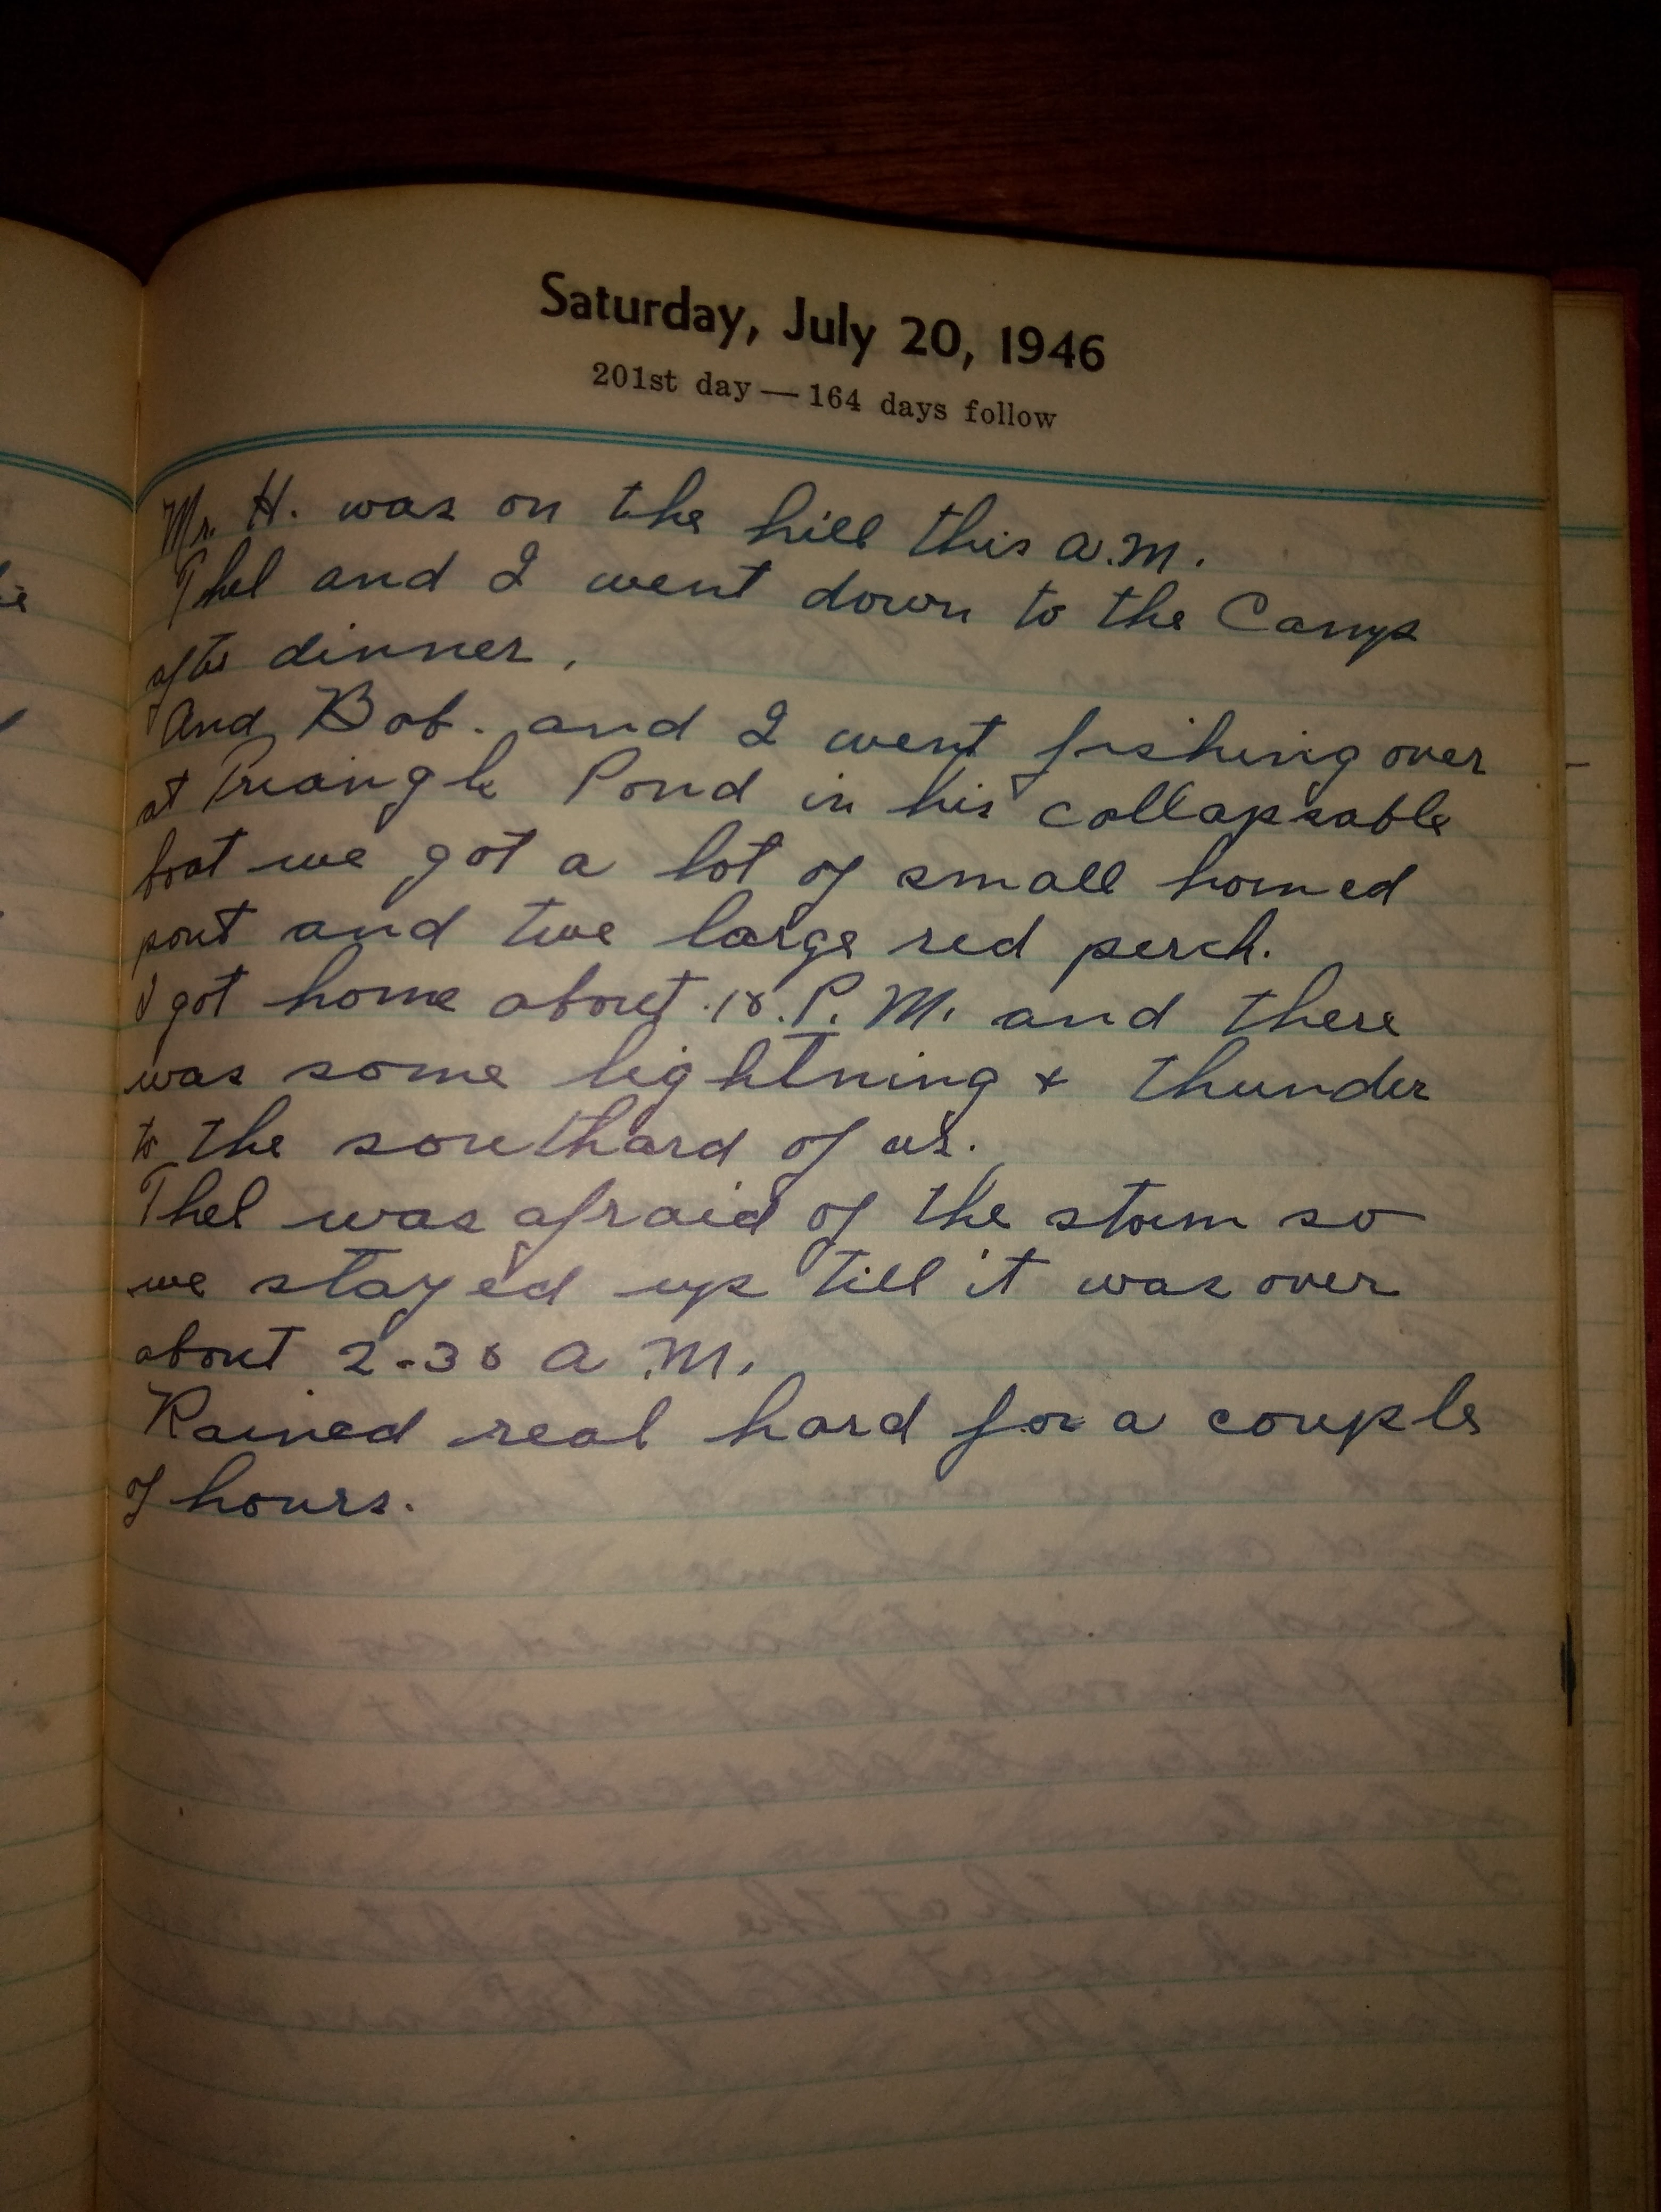 Saturday, July 20, 1946
201st day — 164 days follow
Mr. H. was on the hill this a.m.
Thel and I went down to the Camp
after dinner.
And Bob. and I went fishing over
at Triangle Pond in his collapsable
boat we got a lot of small horned
pout and two large red perch.
I got home about 10. P.M. and there
was some lightning + thunder
to the southard of us.
Thel was afraid of the storm so
we stayed up till it was over
about 2-30 A.M.
Rained real hard for a couple
of hours.